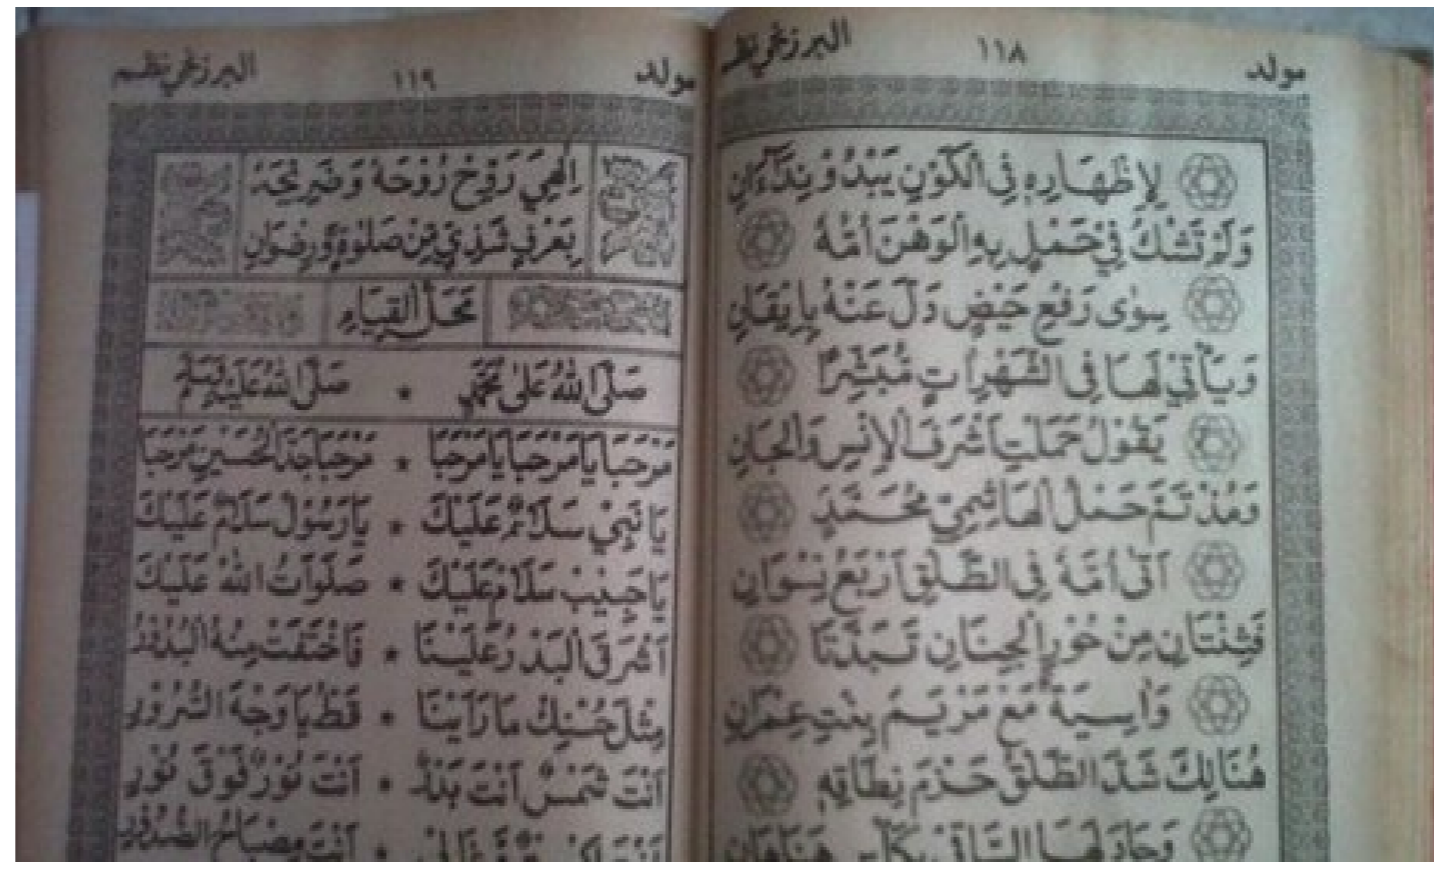 مولد ١١٨ البرزنجي نظم
لِإِظْهَارِهِ فِى الْكَوْنِ يَبْدُوْ نِدَآءَانِ
وَلَمْ تَشْكُ فِيْ حَمْلٍ بِهِ الْوَهْنَ أُمُّهُ
سِوٰى رَفْعِ حَيْضٍ دَلَّ عَنْهُ بِإِيْقَانِ
وَيَأْتِيْ لَهَا فِى الشَّهْرِ اٰتٍ مُبَشِّرًا
يَقُوْلُ حَمَلْتِ اَشْرَفَ الْاِنْسِ وَالْجَانِ
وَمُذْ تَمَّ حَمْلُ الْهَاشِمِيِّ مُحَمَّدٍ
اَتٰى اُمَّهُ فِى الطَّلْقِ اَرْبَعُ نِسْوَانِ
فَثِنْتَانِ مِنْ حُوْرِ الْجِنَانِ تَبَدَّتَا
وَاٰسِيَةٌ مَعْ مَرْيَمَ بِنْتِ عِمْرَانِ
هُنَالِكَ شَدَّ الطَّلْقُ حَزْمَ نِطَاقِهِ
وَجَاءَ لَهَا السَّاقِيْ بِكَأْسٍ
مولد ١١٩ البرزنجي نظم
اِلٰهِيَ رَوِّحْ رُوْحَهُ وَضَرِيْحَهُ
بِعَرْفٍ شَذِيٍّ مِنْ صَلٰوةٍ وَرِضْوَانِ
مَحَلُّ الْقِيَامِ
صَلَّى اللهُ عَلٰى مُحَمَّدٍ * صَلَّى اللهُ عَلَيْهِ وَسَلَّمَ
مَرْحَبًا يَا مَرْحَبًا يَا مَرْحَبَا * مَرْحَبًا جَدَّ الْحُسَيْنِ مَرْحَبَا
يَا نَبِيْ سَلَامٌ عَلَيْكَ * يَا رَسُوْلْ سَلَامٌ عَلَيْكَ
يَا حَبِيْبْ سَلَامٌ عَلَيْكَ * صَلَوَاتُ اللهْ عَلَيْكَ
اَشْرَقَ الْبَدْرُ عَلَيْنَا * فَاخْتَفَتْ مِنْهُ الْبُدُوْرُ
مِثْلَ حُسْنِكْ مَا رَاَيْنَا * قَطُّ يَا وَجْهَ السُّرُوْرِ
اَنْتَ شَمْسٌ اَنْتَ بَدْرٌ * اَنْتَ نُوْرٌ فَوْقَ نُوْرِ
* اَنْتَ مِصْبَاحُ الصُّدُوْرِ